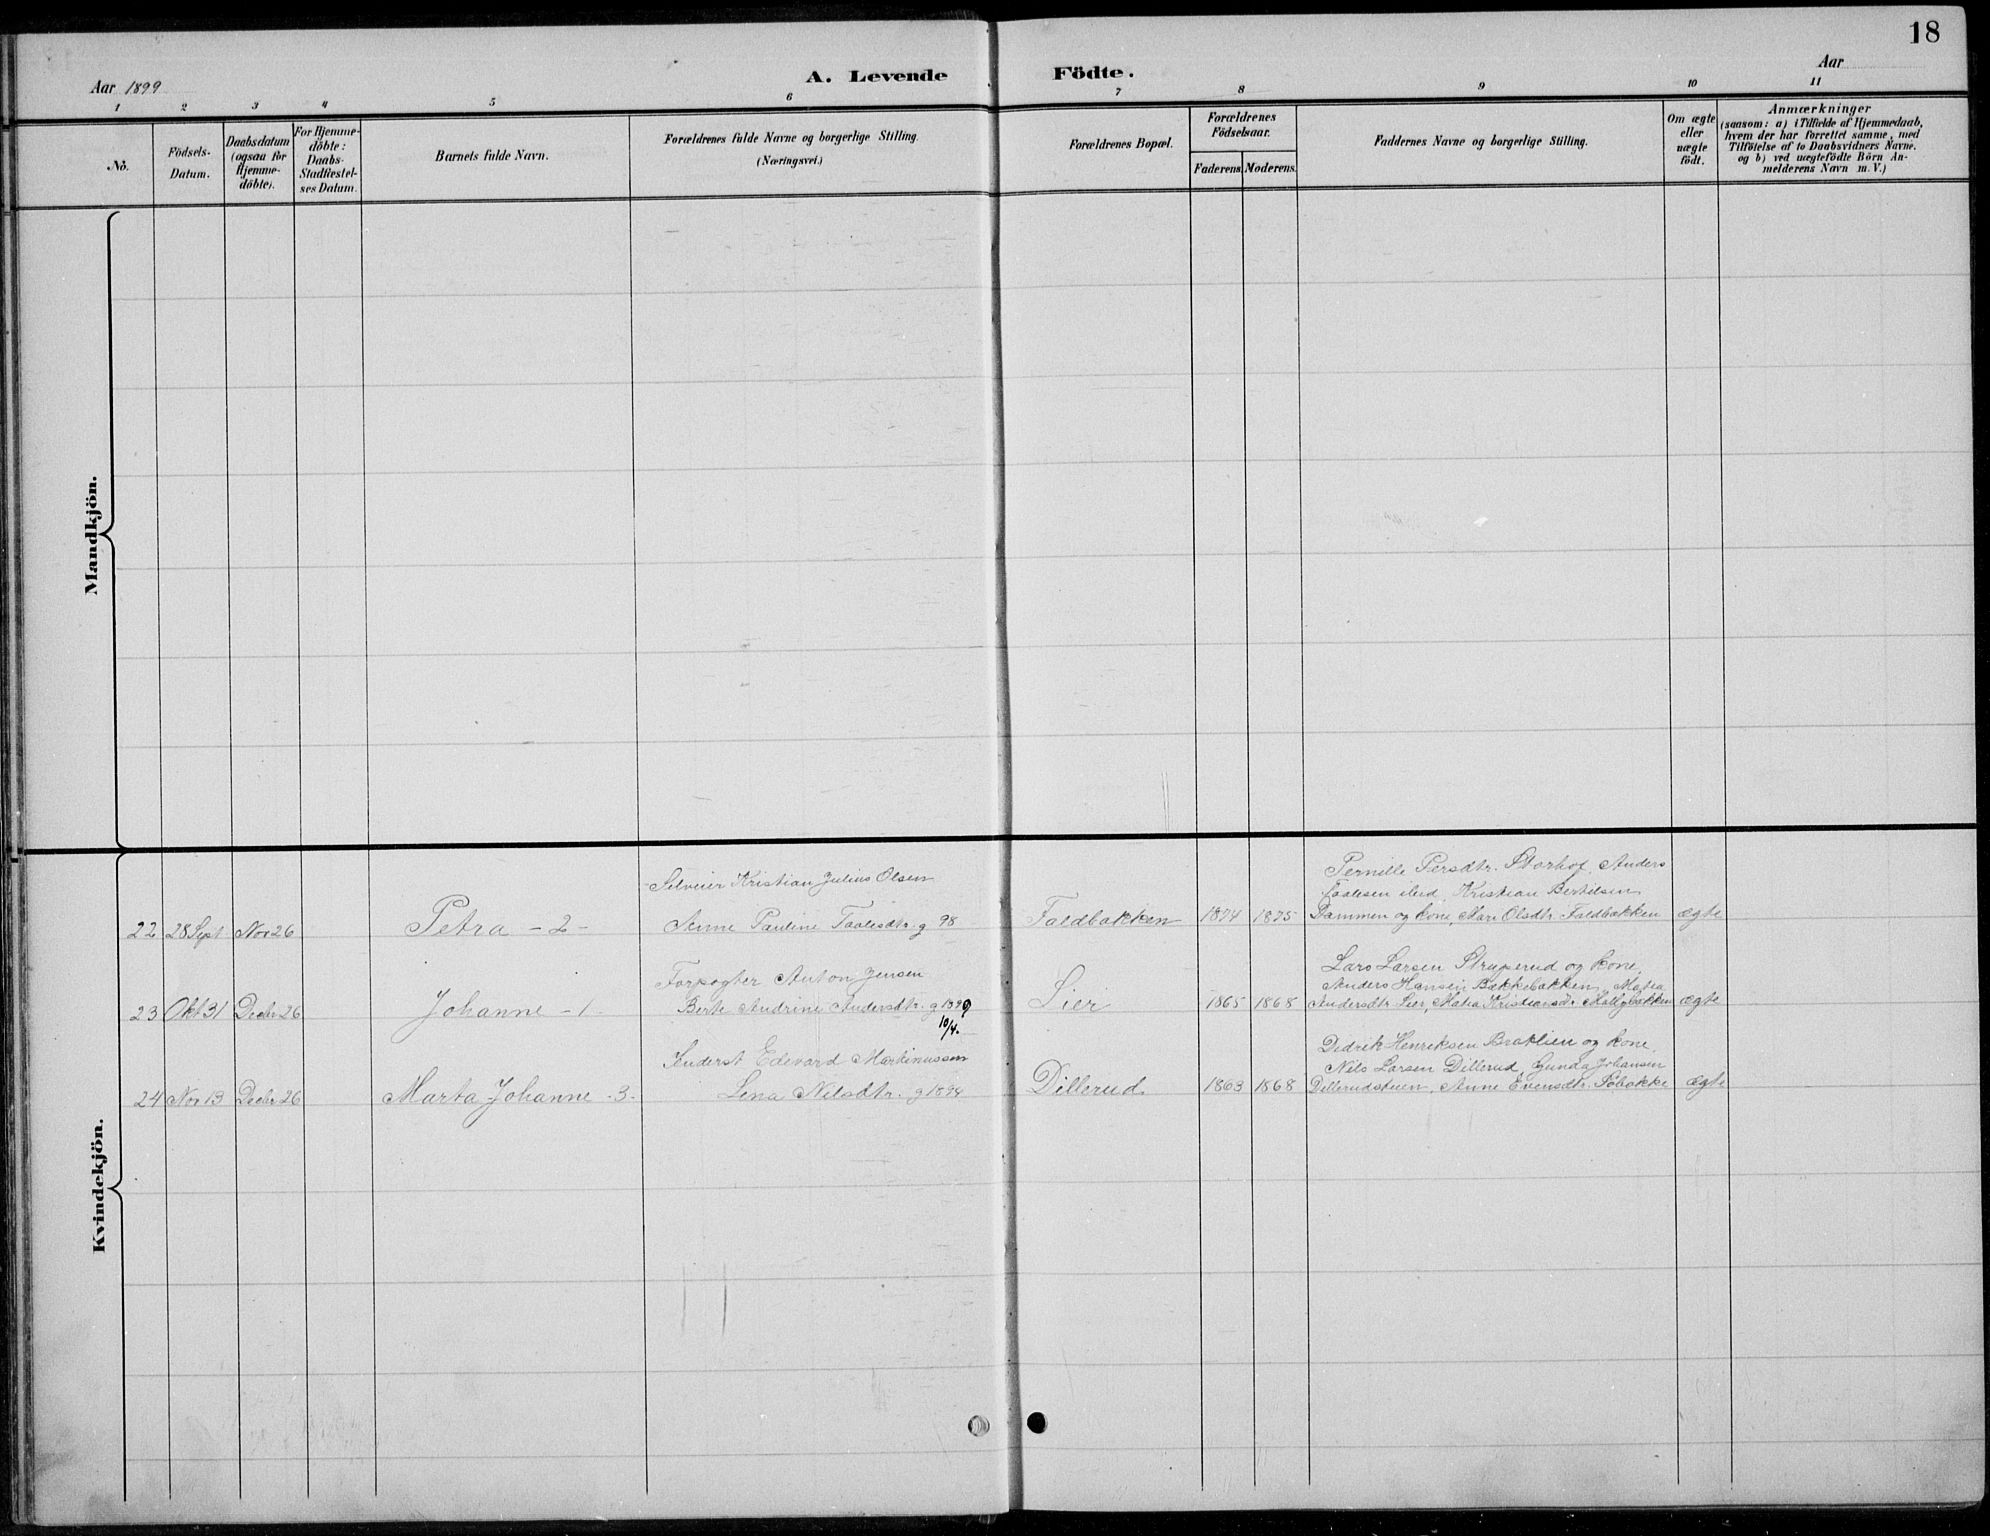 18
Aar 1899
A. Levende Födte.
Aar
1 2 3 4 5 6 7 8 9 10 11
No.
Födsels-Datum.
Daabsdatum (ogsaa for Hjemme-döbte).
For Hjemme-döbte: Daabs-Stadfæstel-ses Datum.
Barnets fulde Navn.
Forældrenes fulde Navne og borgerlige Stilling.
(Næringsvei.)
Forældrenes Bopæl.
Forældrenes Födselsaar.
Faderens.
Moderens.
Faddernes Navne og borgerlige Stilling.
Om ægte eller uægte födt.
Anmærkninger
(saasom: a) i Tilfælde af Hjemmedaab,
hvem der har forrettet samme, med
Tilföielse af to Daabsvidners Navne.
og b) ved uægtefödte Börn An-
melderens Navn m. V.)
Mandkjön.
Kvindekjön.
22 28 Sept Nov 26 Petra - 2 -
Selveier Kristian Julius Olsen
Anne Pauline Taalesdtr. g 98
Faldbakken 1874 1875
Pernille Persdtr. Storhof, Anders
Taalesen ibid, Kristian Bertilsen
Dammen og kone, Mari Olsdtr. Faldbakken
ægte
23 Okt 31 Decbr 26 Johanne - 1 -
Forpagter Anton Jensen
Berte Andrine Andersdtr. g 1899
10/4.
Lier 1865 1868
Lars Larsen Struperud og kone,
Anders Hansen Bakkebakken, Matea
Andersdtr Lier, Matea Kristiansdr.
ægte
24 Nov 13 Decbr 26 Marta Johanne - 3 -
Inderst Edevard Martinussen
Lena Nilsdtr. g 1894
Dillerud 1863 1868
Didrik Henriksen Bratlien og kone,
Nils Larsen Dillerud, Gunda Johansen
Dillerudstuen, Anne Evensdtr.
ægte